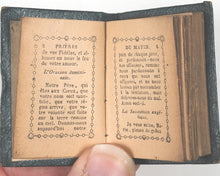 PRIÈRES
de vos Fidèles, et al-
lumez en nous le feu
de votre amour.
L'Oraison domini-
cale.
Notre Père, qui
êtes aux Cieux, que
votre nom soit sanc-
tifié, que votre rè-
gne arrive, que vo-
tre volonté soit faite
en la terre comme
au ciel. Donnez-nous
aujourd'hui notre
DU MATIN.
pain de chaque jour
et pardonnez-
nous nos offenses,
comme nous
pardonnons à ceux
qui nous ont
offensés, et ne nous
La Salutation angé-
lique.
Je vous salue, Ma-
rie, pleine de grâce